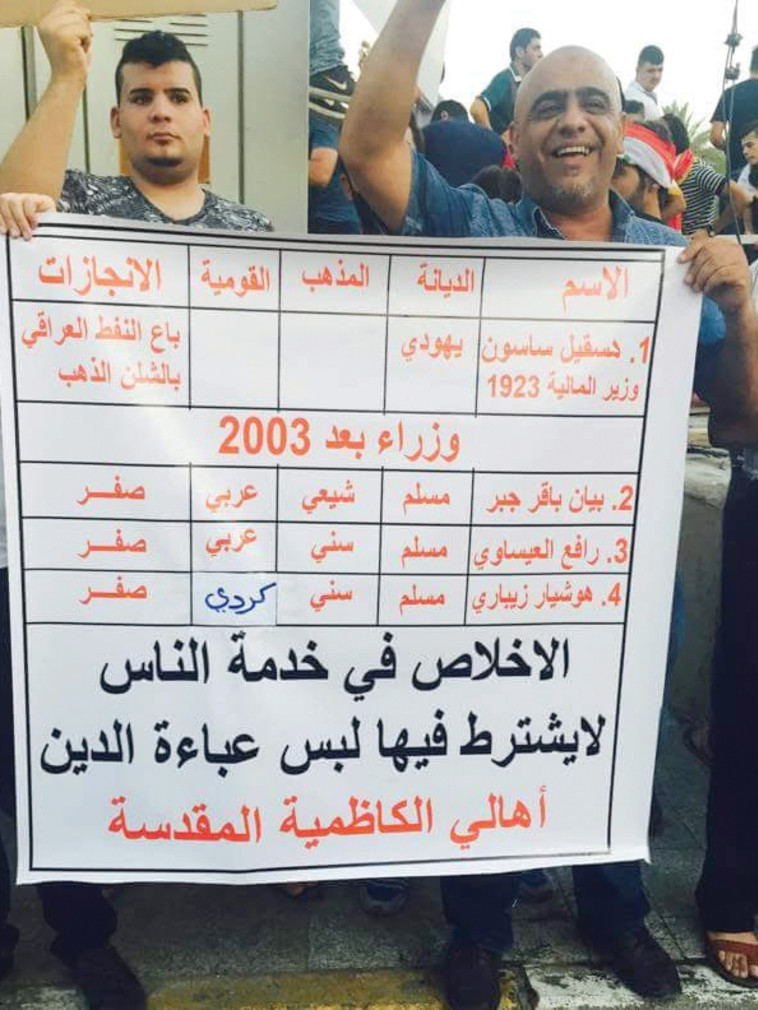 الاسم الديانة المذهب القومية الانجازات
1. حسقيل ساسون يهودي باع النفط العراقي
وزير المالية 1923 بالشلن الذهب
وزراء بعد 2003
2. بيان باقر جبر مسلم شيعي عربي صفر
3. رافع العيساوي مسلم سني عربي صفر
4. هوشيار زيباري مسلم سني كردي صفر
الاخلاص في خدمة الناس
لايشترط فيها لبس عباءة الدين
أهالي الكاظمية المقدسة